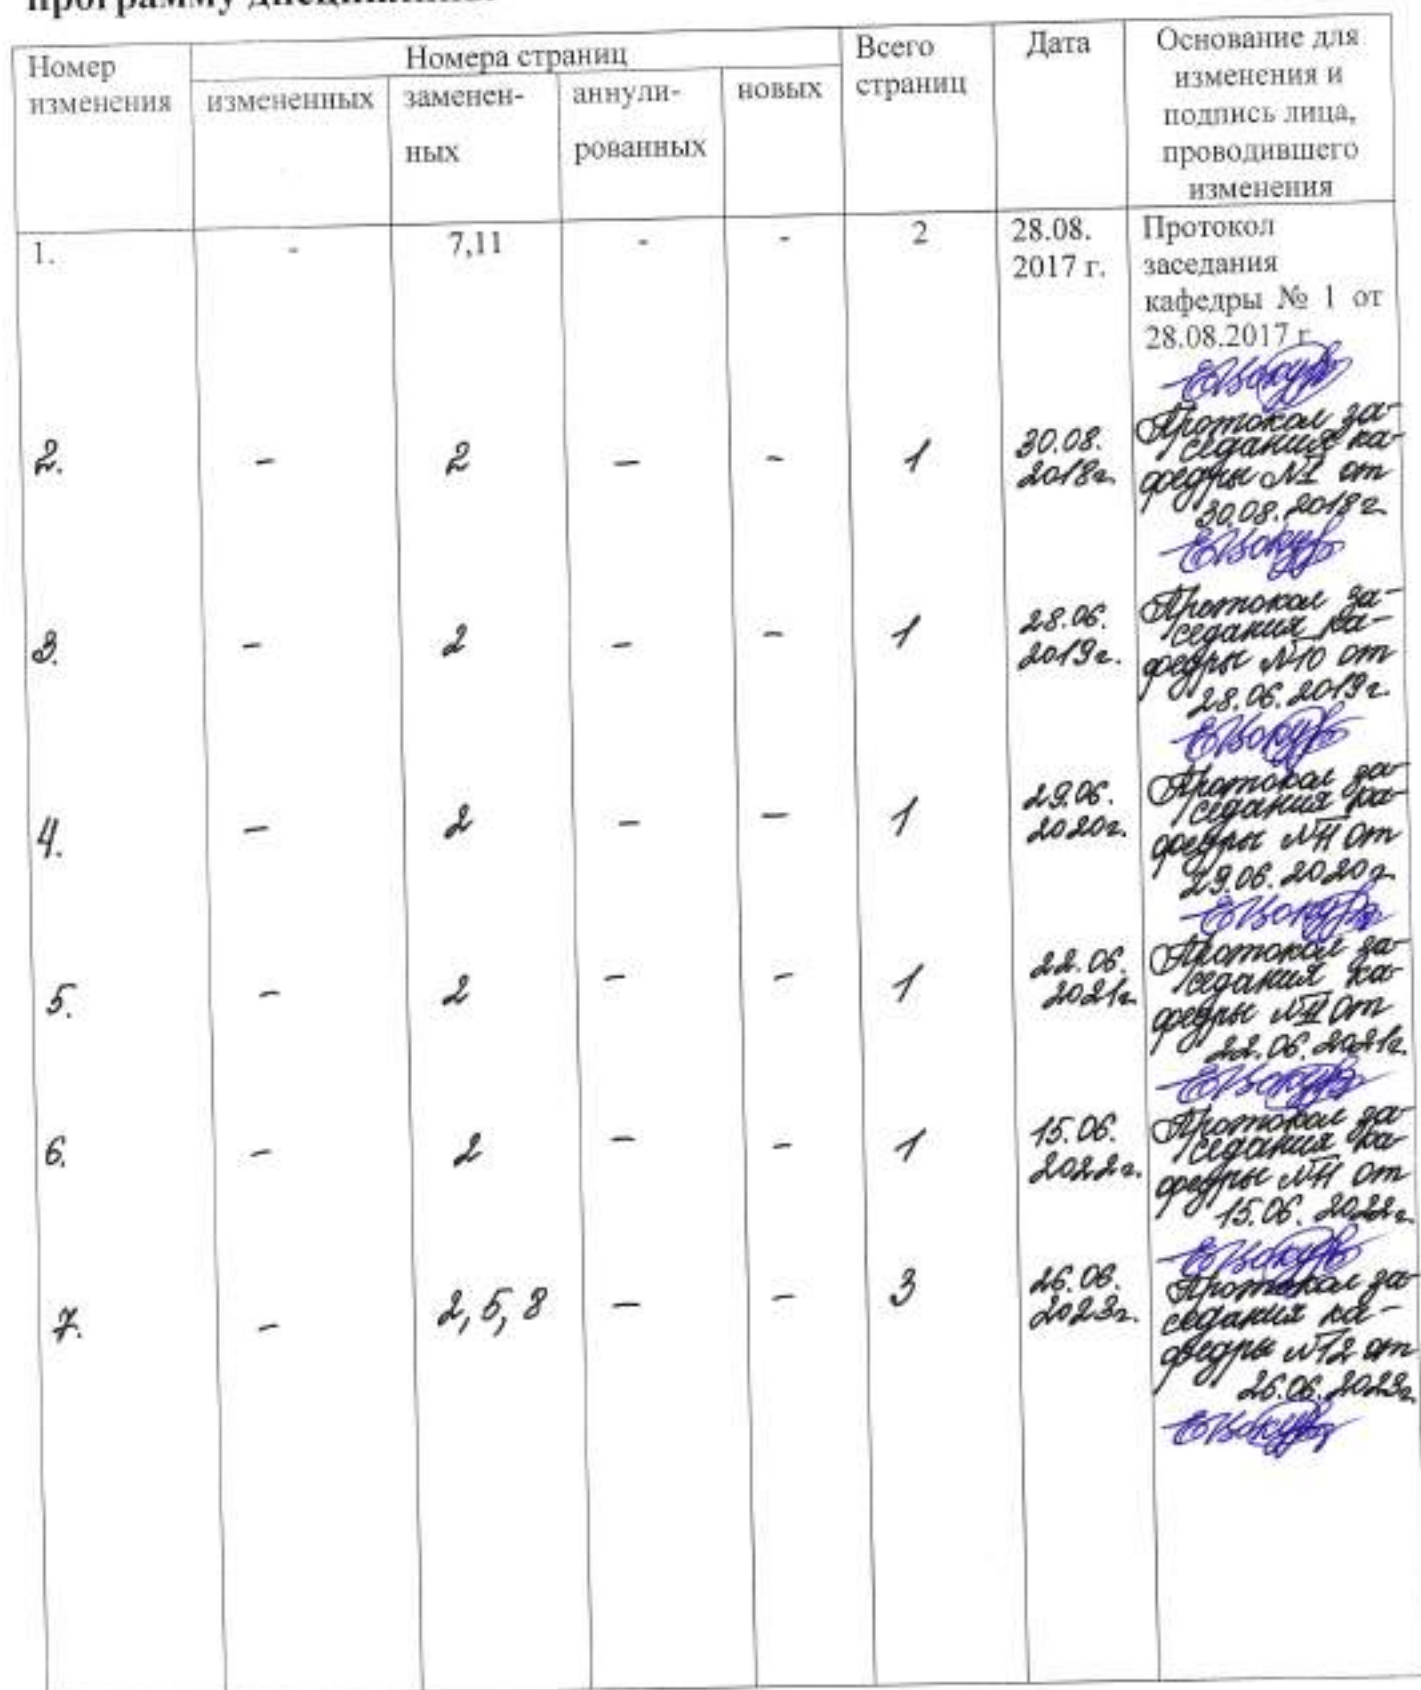 программу дисциплины
Номер изменения
Номера страниц
измененных
заменен-
ных
аннули-
рованных
новых
Всего страниц
Дата
Основание для
изменения и
подпись лица,
проводившего
изменения
1. - 7,11 - - 2 28.08.
2017 г.
Протокол
заседания
кафедры № 1 от
28.08.2017 г.
2. – 2 – – 1 30.08.
2018г.
Протокол за-
седания ка-
федры №1 от
30.08.2018г.
3. – 2 – – 1 28.06.
2019г.
Протокол за-
седания ка-
федры №10 от
28.06.2019г.
4. – 2 – – 1 29.06.
2020г.
Протокол за-
седания ка-
федры №11 от
29.06.2020г.
5. – 2 – – 1 22.06.
2021г.
Протокол за-
седания ка-
федры №11 от
22.06.2021г.
6. – 2 – – 1 15.06.
2022г.
Протокол за-
седания ка-
федры №11 от
15.06.2022г.
7. – 2, 5, 8 – – 3 26.06.
2023г.
Протокол за-
седания ка-
федры №12 от
26.06.2023г.